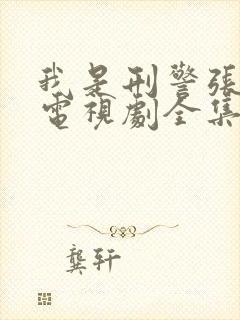 我是刑警張
電視劇全集
龔轩